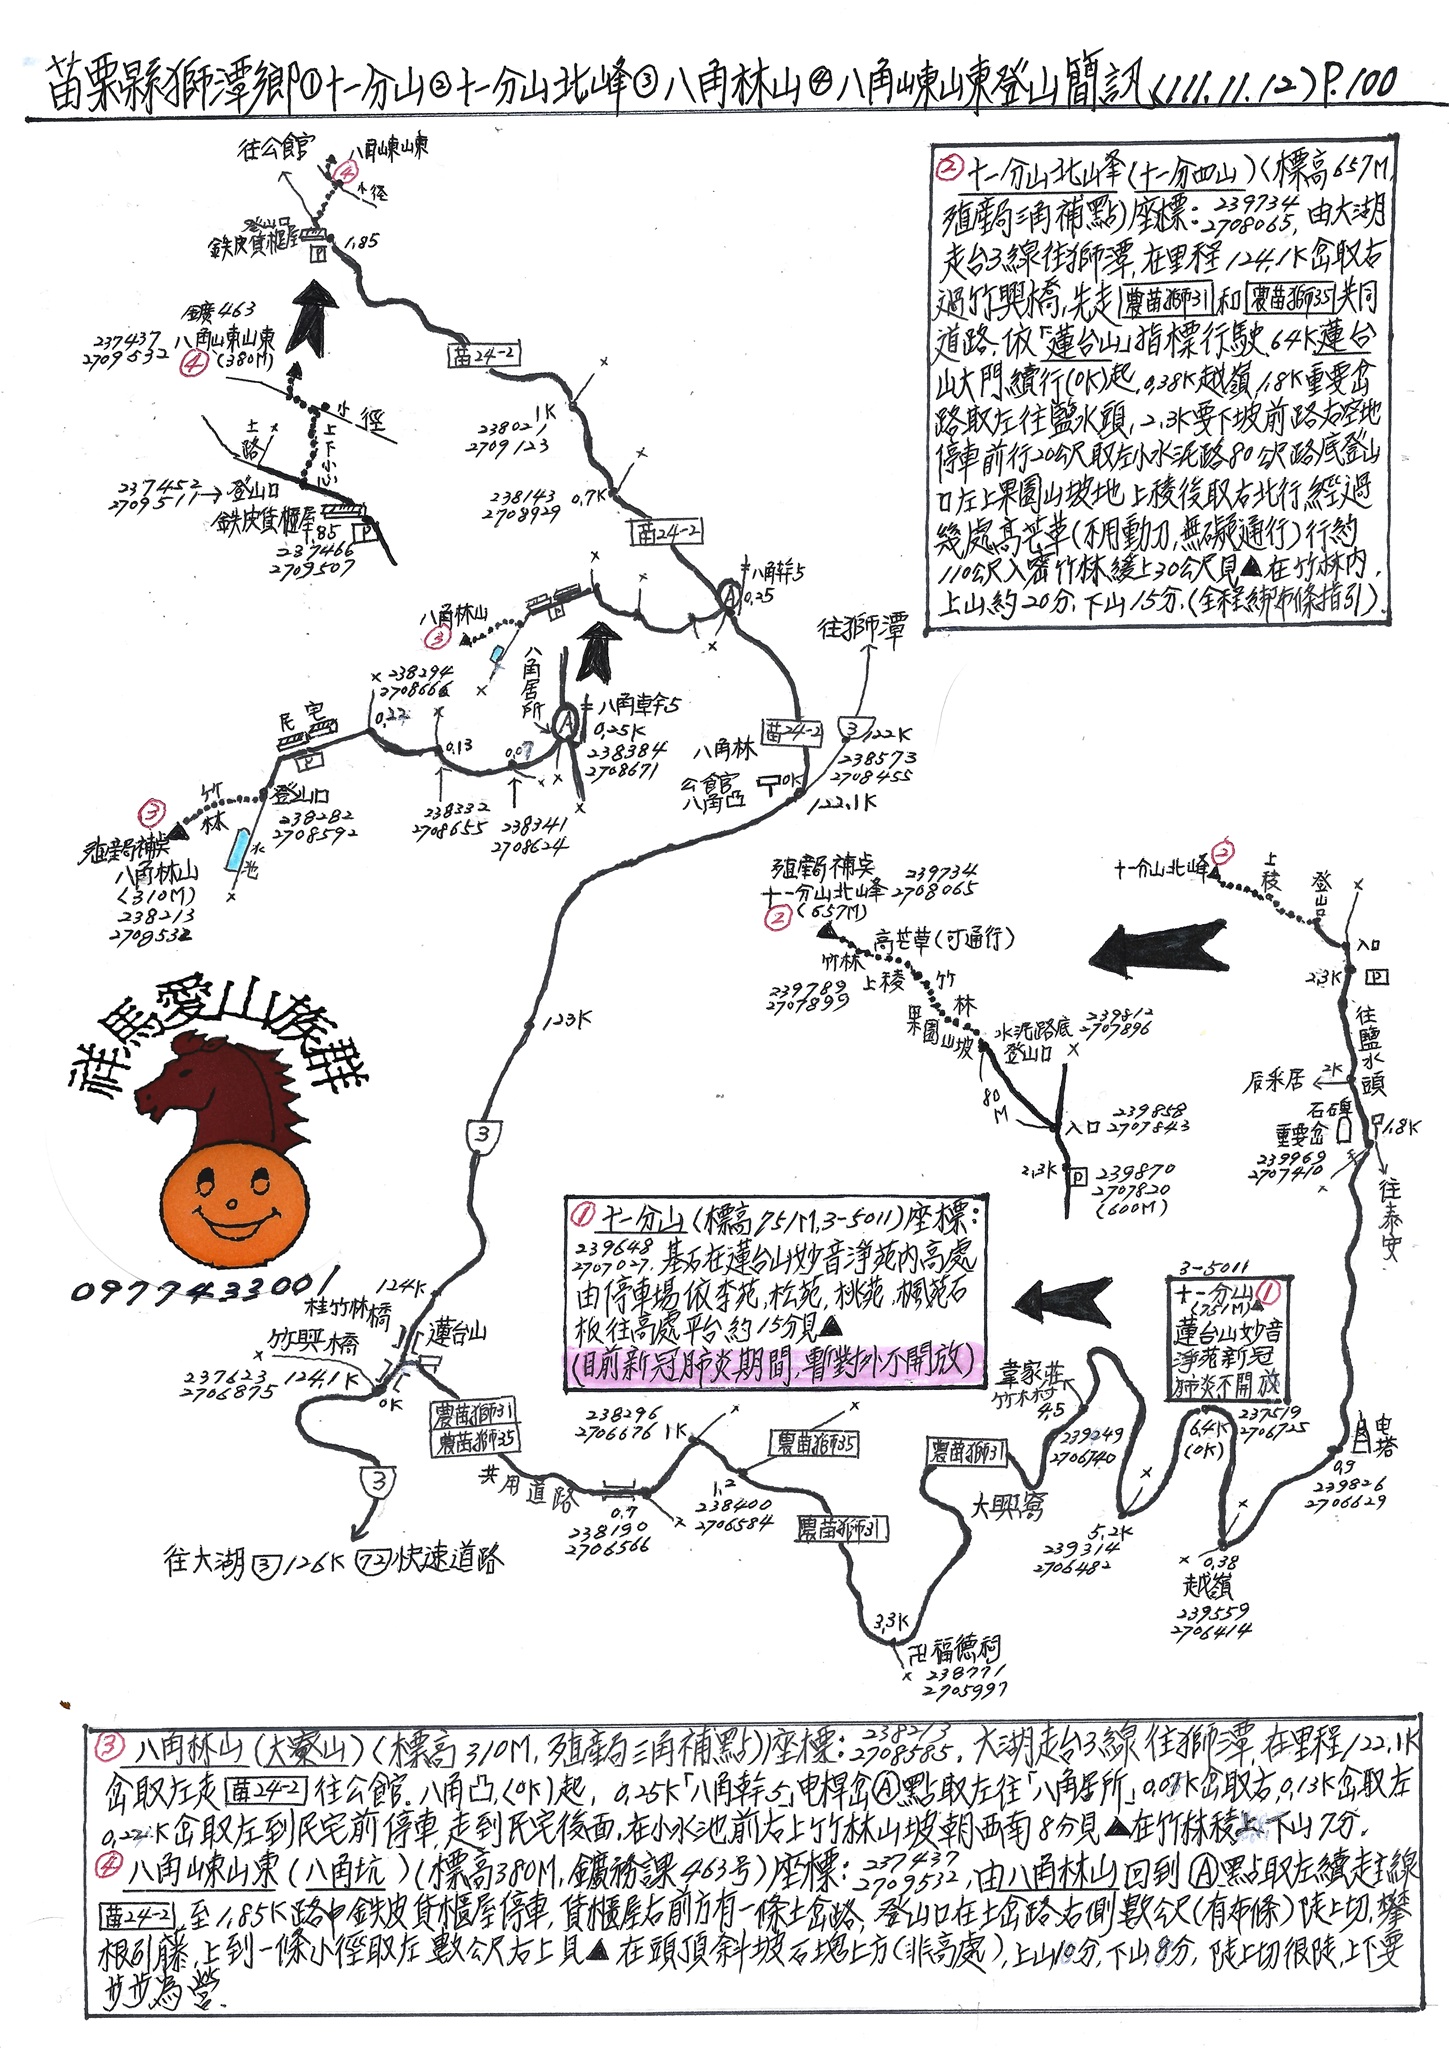 苗栗縣獅潭鄉①十一分山②十一分山北峰③八角林山④八角崠山東登山簡訊(111.11.12)P.100
往公館
④
八角崠山東
小徑
登山口
鉄皮貨櫃屋
P
1.85
鑛463
237437
2709532
八角崠山東
(380M)
④
苗24-2
小徑
上下小心
土路
237452
2709511
登山口
鉄皮貨櫃屋
1.85
P
237466
2709507
1K
238021
2709123
238143
2708929
0.7K
苗24-2
八角幹5
A
0.25
八角林山
③
P
往獅潭
八角居所
238294
2708666
八角幹5
0.25K
238384
2708671
A
民宅
P
0.22
0.13
0.07
登山口
238282
2708592
238332
2708655
238341
2708624
③
竹林
水池
殖產局補点
八角林山
(310M)
238213
2708532
八角林
苗24-2
3
122K
238573
2708455
公館官
八角凸
0K
122.1K
②十一分山北山峰(十一分四山)(標高657M,
殖產局三角補點)座標:239734
2708065,由大湖
走台3線往獅潭,在里程124.1K岔取右
過竹興橋,先走農苗獅31和農苗獅35共同
道路,依「蓮台山」指標行駛.6.4K蓮台
山大門,續行(0K)起,0.38K越嶺,1.8K重要岔
路取左往鹽水頭,2.3K要下坡前路右空地
停車前行20公尺取左小水泥路80公尺路底登山
口左上果園山坡地上稜後取右北行,經過
幾處高芒草(不用動刀,無礙通行)行約
110公尺入密竹林緩上30公尺見▲在竹林內,
上山約20分,下山15分.(全程綁布條指引)
殖產局補点
十一分山北山峰
239734
2708065
②
(657M)
高芒草(可通行)
竹林
上稜
竹林
239789
2707899
果園山坡
水泥路底
登山口
239812
2707896
80M
入口
239858
2707843
2.3K
P
239870
2707820
(600M)
十一分山北峰
②
上稜
登山口
入口
2.3K
P
往鹽水頭
辰采居
2K
石碑
重要岔
239969
2707410
1.8K
往泰安
123K
3
祥馬愛山族群
0977433001
①十一分山(標高751M,3-5011)座標:
239648
2707027.基石在蓮台山妙音淨苑內高處
由停車場依李苑,松苑,桃苑,楓苑石
板往高處平台約15分見▲
(目前新冠肺炎期間,暫對外不開放)
3-5011
十一分山①
(751M)▲
蓮台山妙音
淨苑新冠
肺炎不開放
124K
桂竹林橋
竹興橋
蓮台山
237623
2706875
124.1K
0K
農苗獅31
農苗獅35
共用道路
3
往大湖③126K㊆快速道路
238296
2706676
1K
農苗獅35
0.7
238190
2706566
1.2
238400
2706584
農苗獅31
3.3K
卍福德祠
238771
2705997
農苗獅31
大興寮
韋家莊
竹木村
4.5
239249
2706740
5.2K
239314
2706482
6.4K
(0K)
237519
2706725
电塔
0.9
239826
2706629
0.38
越嶺
239559
2706414
③八角林山(大寮山)(標高310M,殖產局三角補點)座標:238213
2708585,大湖走台3線往獅潭,在里程122.1K
岔取左走苗24-2往公館.八角凸,(0K)起,0.25K「八角幹5」电桿岔Ⓐ點取左往「八角居所」,0.07K岔取右,0.13K岔取左
0.22K岔取左到民宅前停車,走到民宅後面,在小水池前右上竹林山坡朝西南8分見▲在竹林稜上,下山7分.
④八角崠山東(八角坑)(標高380M,鑛務課463号)座標:237437
2709532,由八角林山回到Ⓐ點取左續走主線
苗24-2至1.85K路中鉄皮貨櫃屋停車,貨櫃屋右前方有一條土岔路,登山口在土岔路右側數公尺(有布條)陡上切,攀
根引藤,上到一條小徑取左數公尺右上見▲在頭頂斜坡石塊上方(非高處),上山10分,下山8分,陡上切很陡,上下要
步步為營.